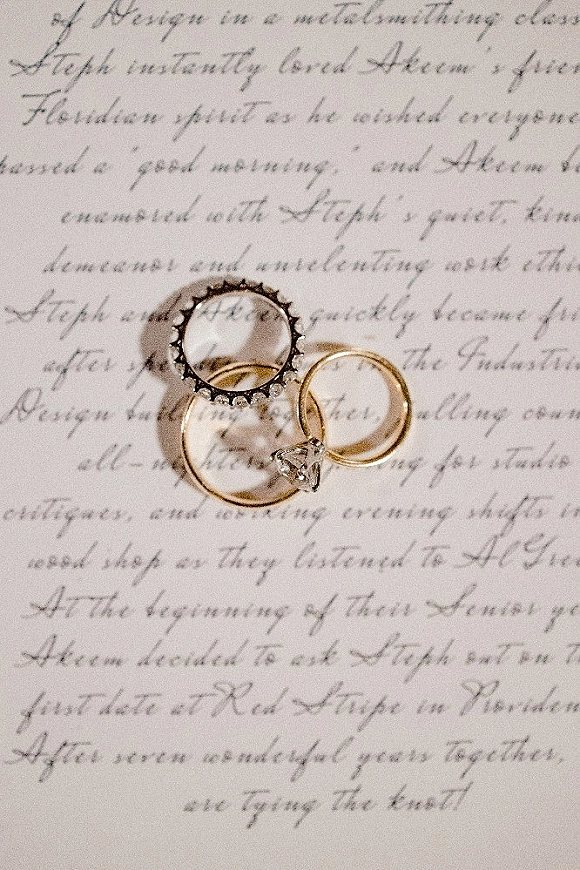 of Design in a metalsmithing class
Steph instantly loved Akeem's frien
Floridian spirit as he wished everyone
passed a "good morning," and Akeem be
enamored with Steph's quiet, kind
demeanor and unrelenting work ethic
Steph and Akeem quickly became fri
after spe in the Industria
Design building together, pulling coun
all-nighters ing for studio
critiques, and working evening shifts in
wood shop as they listened to Al Gree
At the beginning of their Senior ye
Akeem decided to ask Steph out on t
first date at Red Stripe in Providen
After seven wonderful years together,
are tying the knot!